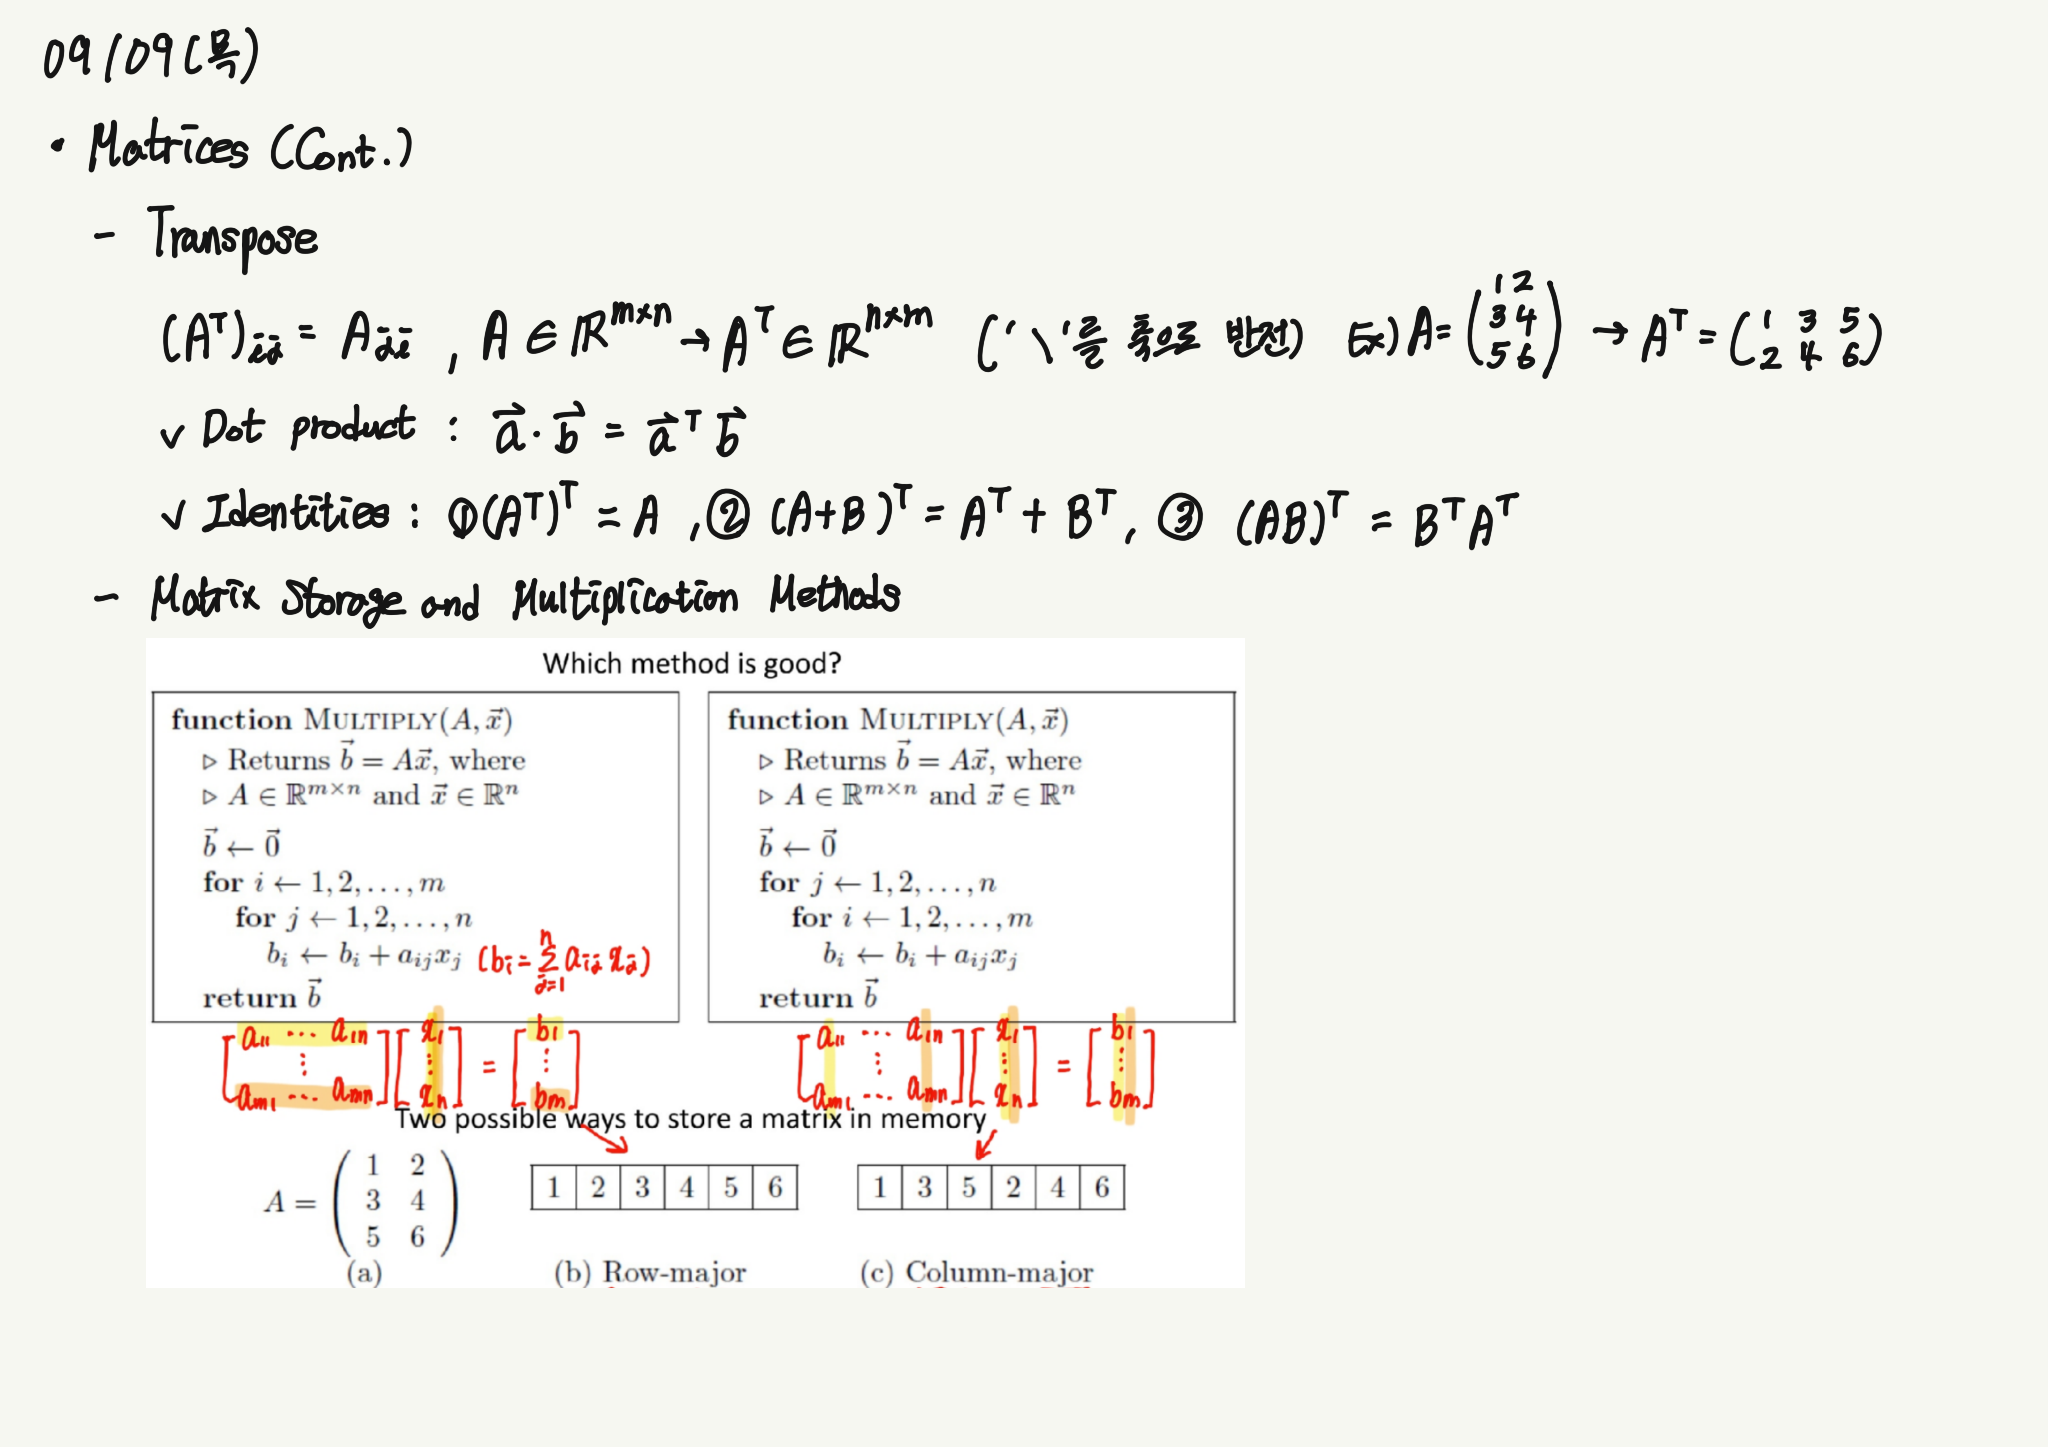 09/09(목)
• Matrices (Cont.)
- Transpose
(Aᵀ)ᵢⱼ = Aⱼᵢ , A ∈ ℝᵐˣⁿ → Aᵀ ∈ ℝⁿˣᵐ ('\'를 축으로 반전) Ex) A = (1 2 3 4 5 6) → Aᵀ = (1 3 5 2 4 6)
✓ Dot product : a⃗·b⃗ = a⃗ᵀb⃗
✓ Identities : ①(Aᵀ)ᵀ = A , ② (A+B)ᵀ = Aᵀ + Bᵀ, ③ (AB)ᵀ = BᵀAᵀ
- Matrix Storage and Multiplication Methods
Which method is good?
function MULTIPLY(A, x⃗)
▷ Returns b⃗ = Ax⃗, where
▷ A ∈ ℝᵐˣⁿ and x⃗ ∈ ℝⁿ
b⃗ ← 0⃗
for i ← 1, 2, . . . , m
for j ← 1, 2, . . . , n
bᵢ ← bᵢ + aᵢⱼxⱼ (bᵢ = Σⁿⱼ₌₁ aᵢⱼxⱼ)
return b⃗
function MULTIPLY(A, x⃗)
▷ Returns b⃗ = Ax⃗, where
▷ A ∈ ℝᵐˣⁿ and x⃗ ∈ ℝⁿ
b⃗ ← 0⃗
for j ← 1, 2, . . . , n
for i ← 1, 2, . . . , m
bᵢ ← bᵢ + aᵢⱼxⱼ
return b⃗
[a₁₁ ⋯ a₁ₙ ⋮ aₘ₁ ⋯ aₘₙ][x₁ ⋮ xₙ] = [b₁ ⋮ bₘ]
[a₁₁ ⋯ a₁ₙ ⋮ aₘ₁ ⋯ aₘₙ][x₁ ⋮ xₙ] = [b₁ ⋮ bₘ]
Two possible ways to store a matrix in memory
A = (1 2
3 4
5 6)
1 2 3 4 5 6
1 3 5 2 4 6
(a)
(b) Row-major
(c) Column-major